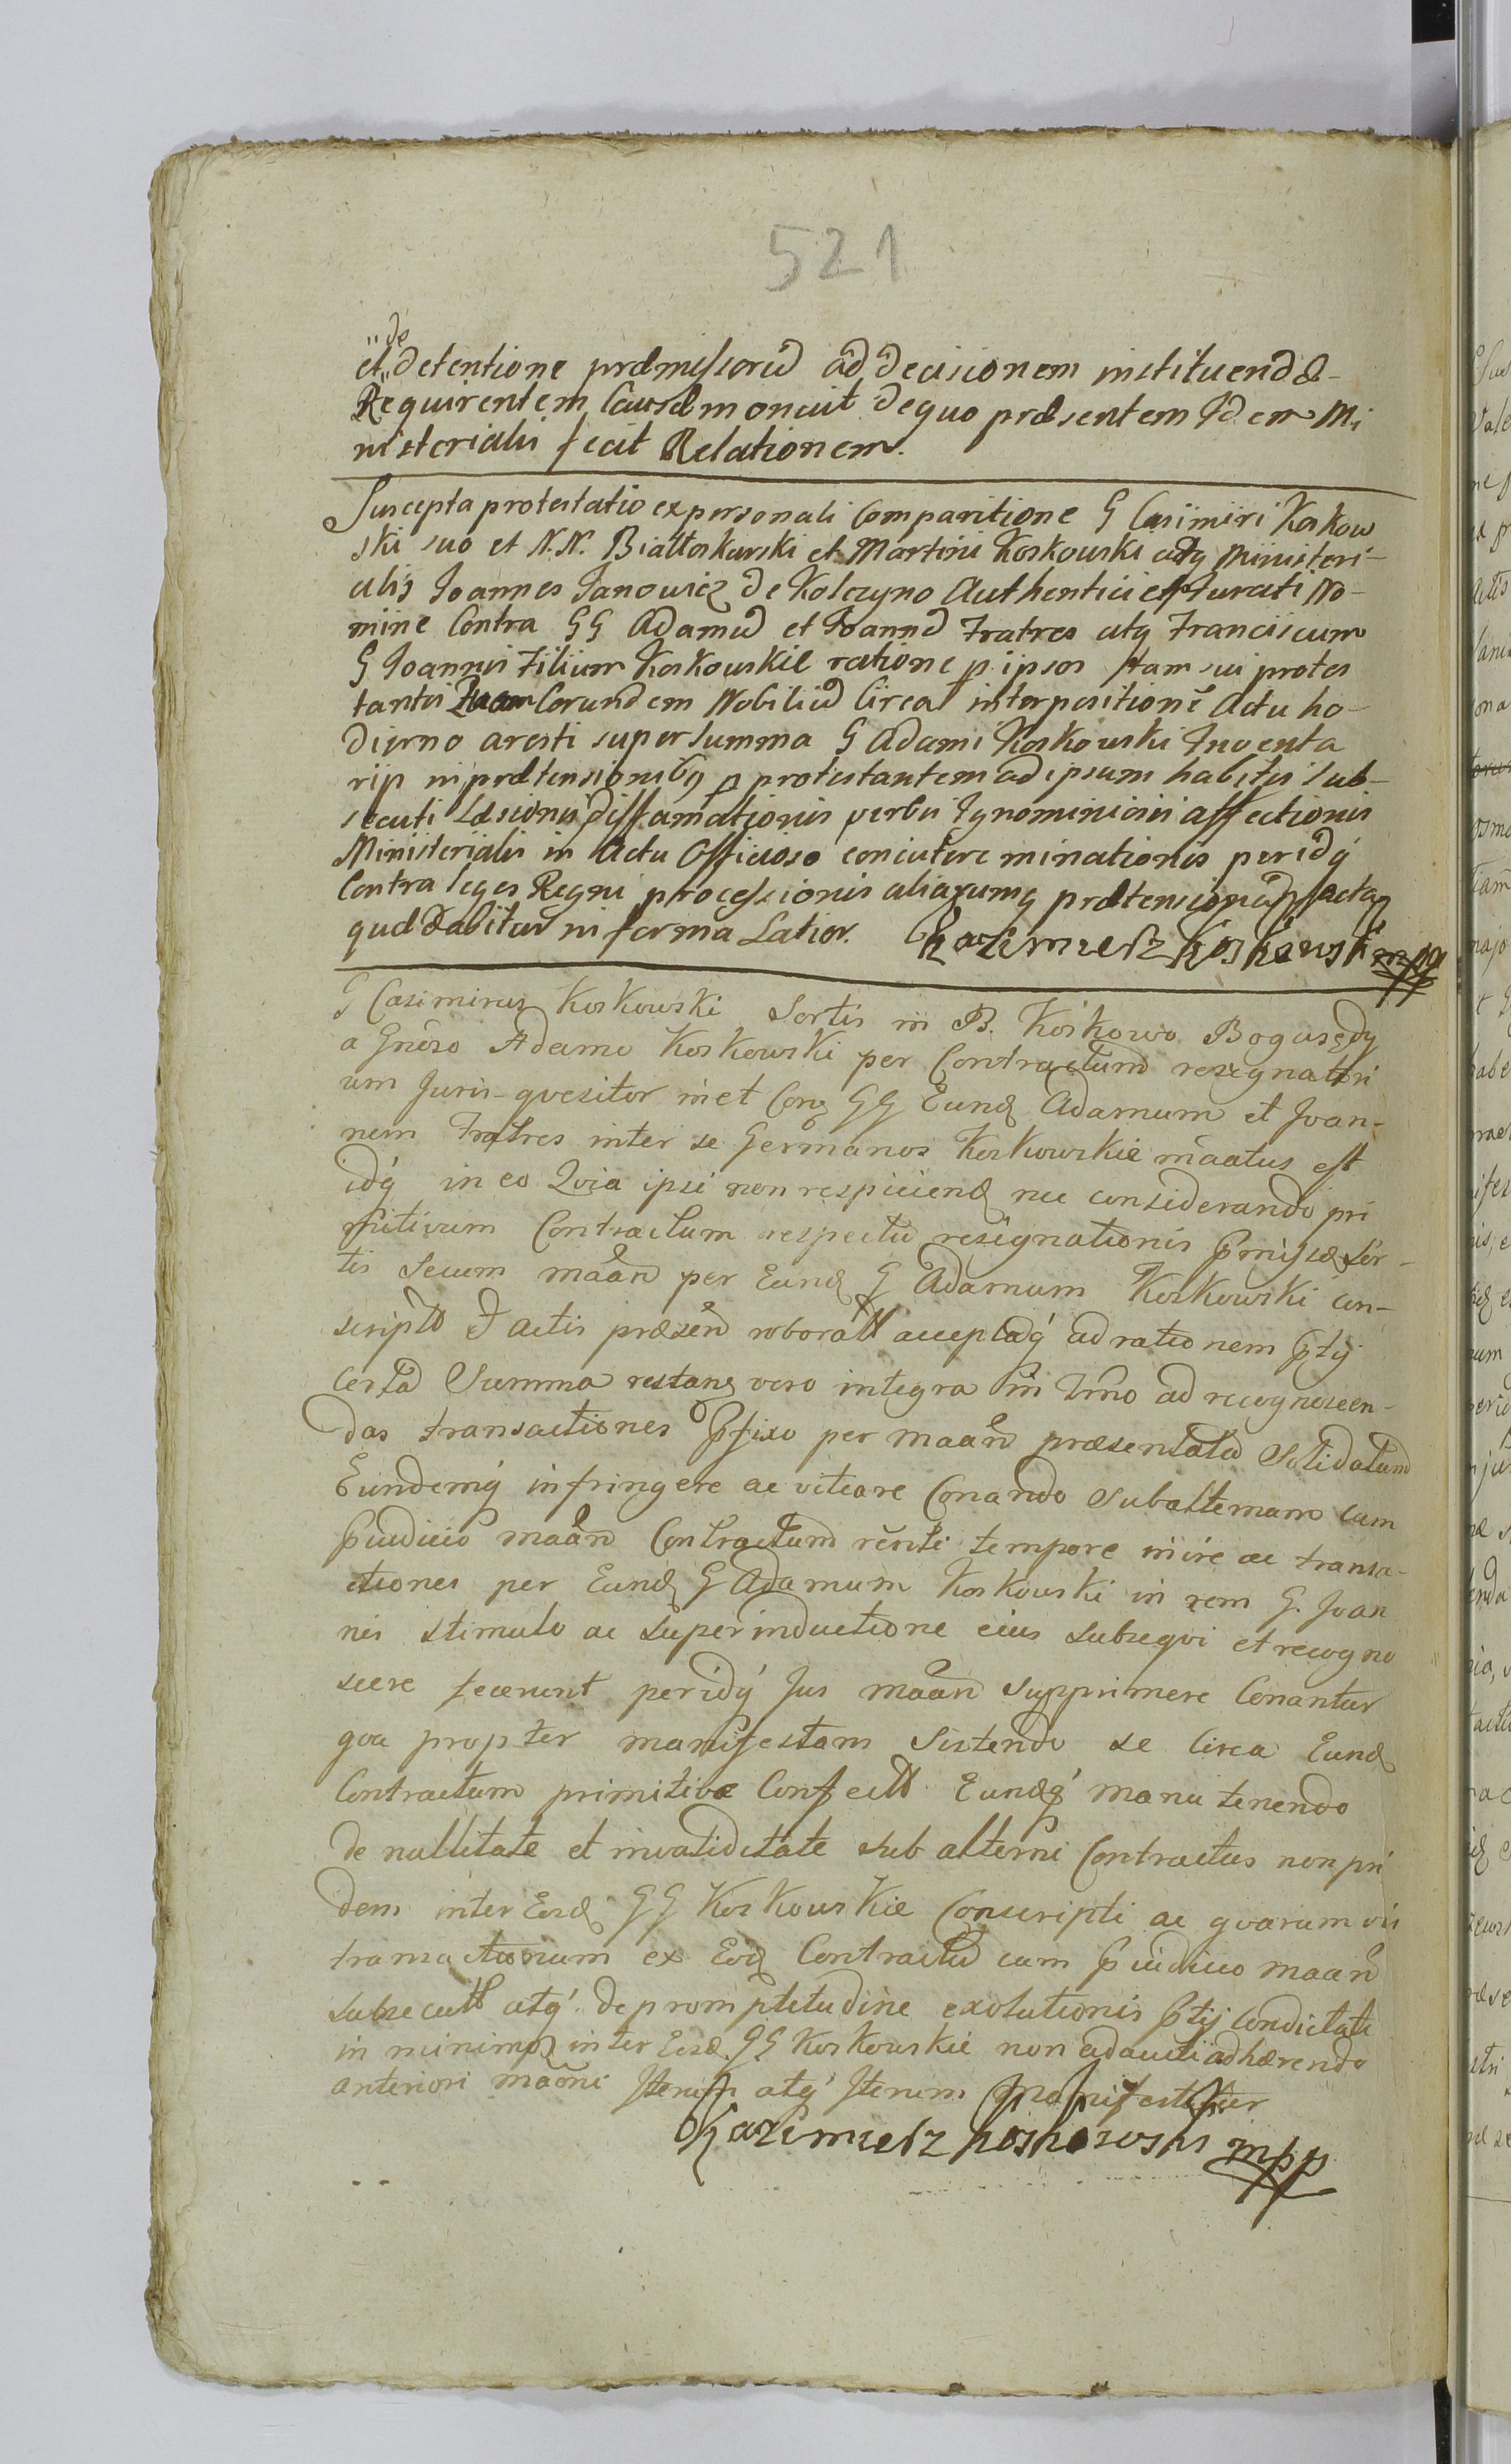 521
de
et detentione præmissorũ ad decisionem instituendæ
Requirentem Causæ monuit de quo præsentem Idem Mi
nisterialis fecit Relationem.
Suscepta protestatio ex personali Comparitione G Casimiri Koskow
ski suo et N.N. Białłoskurski et Martini Koskowski atq Ministeri-
alis Joannes Janowicz de Kolczyno Authentici et Jurati No-
mine Contra GG Adamũ et Joannẽ Fratres atq Franciscum
G Joannis Filium Koskowskie ratione p ipsos tam sui protes
tantis Quam Eorundem Nobiliũ Circa interpositionẽ Actu ho-
dierno aresti super Summa G Adami Koskowski Inventa
rip in prætensionibq p protestantem ad ipsum habitis sub-
secuti Læsionis diffamationis verbis Ignominiosis affectionis
Ministerialis in Actu Officioso concutere minationis peridq́
Contra leges Regni processionis aliarumq prætensionũ p actaq
quæ dabitur in forma Latior. Kazimierz Koskowski mpp
G Casimirus Koskowski Sortis in B. Koskowo Bogusędy
a Gnẽso Adamo Koskowski per Contractum resignatori
um Juris-qvesitor in et Conq GG Eund Adamum et Joan-
nem Fratres inter se Germanos Koskowskie mãatus est
idq́ in eo Qvia ipsi non respiciend nec considerando pri
mitivum Contractum respectu resignationis pmissæ Sor-
tis Secum mãan per Eund G Adamum Koskowski con-
scriptũ & actis præsen roboratũ acceptaq́ ad rationem ptij
certa Summa restanq vero integra in Trno ad recognoscen-
das transactiones pfixo per maan præsentata Solidatum
Eundemq́ infringere ac vitiare Conando Subalternam cum
pjudicio maan Contractum rẽnti tempore inire ac transa-
ctiones per Eund G Adamum Koskowski in rem G. Joan
nis stimulo ac Superinductione eius subseqvi et recogno
scere fecerunt peridq́ Jus maan Supprimere Conantur
qva propter manifestans Sistendo se Circa Eund
Contractum primitive Confectũ Eundq́ manu tenendo
de nullitate et invaliditate sub alterni Contractus non pri
dem inter Eosd GG Koskowskie Conscripti ac qvarumvis
transactionum ex Eod Contractu cum pjudicio maan
subsecutũ atq́ de promptitudine exolutionis ptij condictati
in minimo inter Eosd GG Koskowskie non adaucti adhærendo
anteriori mãoni Iterum atq́ Iterum Manifestatur
Kazimierz Koskowski mpp